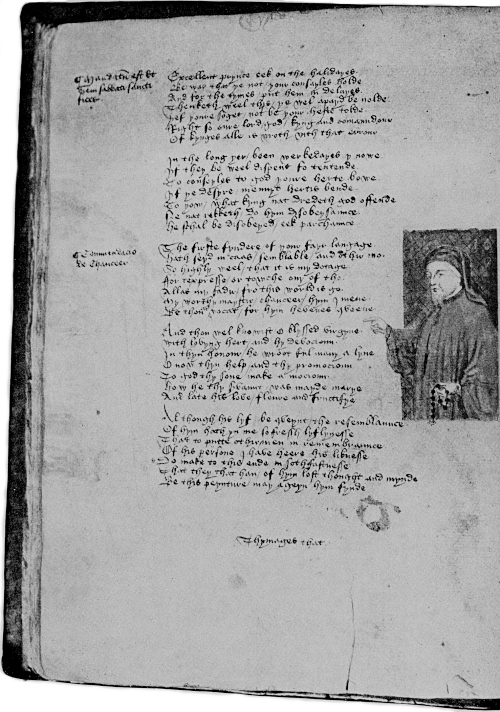 Mandatum est ut
Dem sabbata sancti
ficet
Excellent prynce eek on the halidayes
Be war that ye not your consayles holde
And for the tymes put hem in delayes
Thenketh weel this ye wel apayd be nolde
Yef youre soget not be your heste tolde
Right so owre lord god kyng and comaundour
Of kynges alle is wroth with that errour
In the long yer been werkedayes ynowe
If they be weel dispent for tentende
To conseyles to god youre herte bowe
If ye desyre men yow hertis bende
To yow / what kyng nat dredeth god offende
Ne nat rekketh do hym disobeysaunce
He schal be disobeyed eek parchaunce
Commendacio
de Chaucer
The firste fyndere of your fayr langage
Hath seyd in caas semblable / and othir mo
So highly weel / that it is my dotage
For texpresse or towche any of tho
Allas my fadir fro this world is go
My worthy maystir chaucer hym I mene
Be thou vocat for hym hevenes qweene
And thou wel knowist o blyssed virgyne
With lovyng hert and hy devocioun
In thyn honour he wroot ful many a lyne
O now thyn help and thy promocioun
To god thy sone make a mocioun
How he thy servant was mayde marye
And late his love floure and fructifye
Although his lyf be qweynt the resemblaunce
Of hym hath in me so fressh lyflynesse
That to putte othirmen in remembraunce
Of his persone I have heere his liknesse
Do make to this ende in sothfastnesse
That they that han of hym loft thought and mynde
Be this peynture may ageyn hym fynde
Thymages that